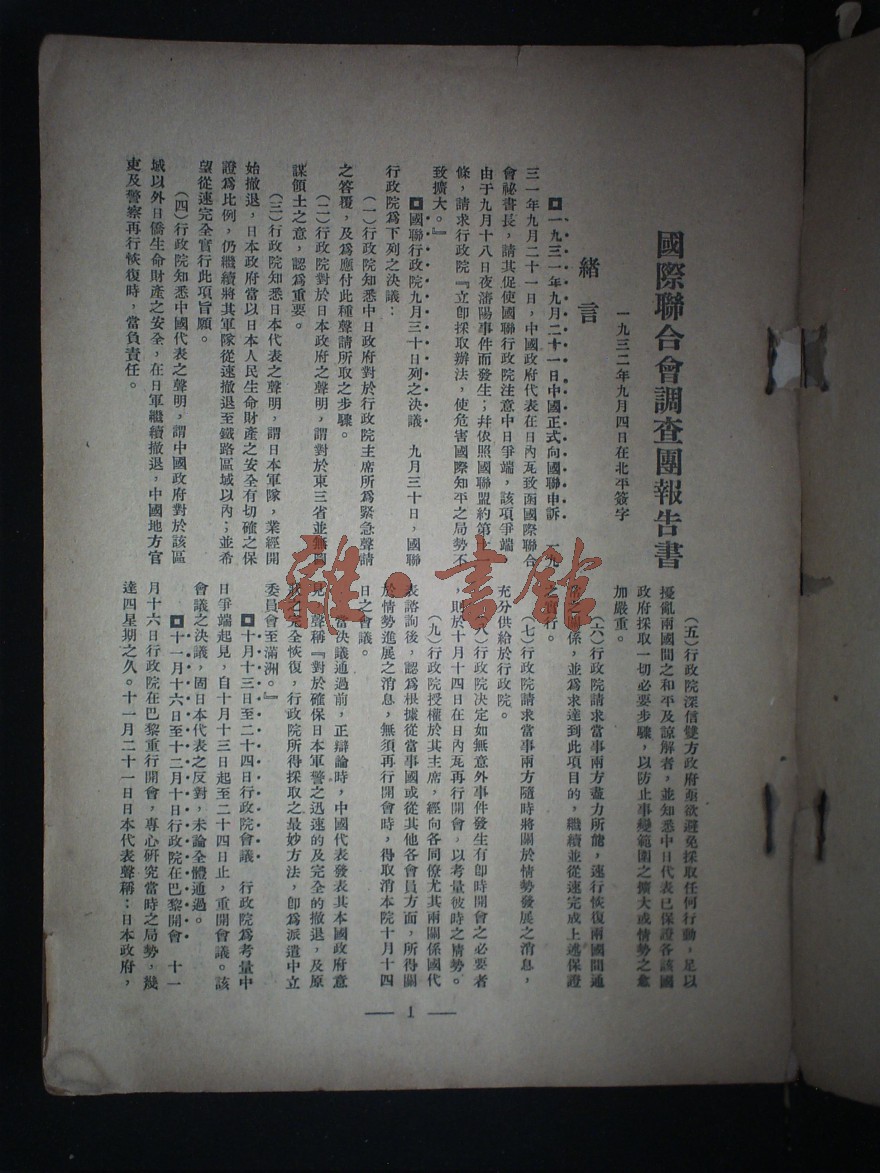 國際聯合會調查團報告書
一九三二年九月四日在北平簽字
緒言
一九三一年九月二十一日中國正式向國聯申訴 一九
三一年九月二十一日,中國政府代表在日內瓦致函國際聯合
會祕書長,請其促使國聯行政院注意中日爭端,該項爭端
由于九月十八日夜瀋陽事件而發生;幷依照國聯盟約第十
條,請求行政院『立卽採取辦法,使危害國際和平之局勢不
致擴大。』
國聯行政院九月三十日列之決議 九月三十日,國聯
行政院爲下列之決議:
(一)行政院知悉中日政府對於行政院主席所爲緊急聲請
之答覆,及爲應付此種聲請所取之步驟。
(二)行政院對於日本政府之聲明,謂對於東三省並無圖
謀領土之意,認爲重要。
(三)行政院知悉日本代表之聲明,謂日本軍隊,業經開
始撤退,日本政府當以日本人民生命財產之安全有切確之保
證爲比例,仍繼續將其軍隊從速撤退至鐵路區域以內;並希
望從速完全實行此項旨願。
(四)行政院知悉中國代表之聲明,謂中國政府對於該區
域以外日僑生命財產之安全,在日軍繼續撤退,中國地方官
吏及警察再行恢復時,當負責任。
(五)行政院深信雙方政府亟欲避免採取任何行動,足以
擾亂兩國間之和平及諒解者,並知悉中日代表已保證各該國
政府採取一切必要步驟,以防止事變範圍之擴大或情勢之愈
加嚴重。
(六)行政院請求當事兩方盡力所能,速行恢復兩國間通
關係,並爲求達到此項目的,繼續並從速完成上述保證
之實行。
(七)行政院請求當事兩方隨時將關於情勢發展之消息,
充分供給於行政院。
(八)行政院決定如無意外事件發生有卽時開會之必要者
,則於十月十四日在日內瓦再行開會,以考量彼時之情勢。
(九)行政院授權於其主席,經向各同僚尤其兩關係國代
表諮詢後,認爲根據從當事國或從其他各會員方面,所得關
於情勢進展之消息,無須再行開會時,得取消本院十月十四
日之會議。
當決議通過前,正辯論時,中國代表發表其本國政府意
見,聲稱『對於確保日本軍警之迅速的及完全的撤退,及原
狀之完全恢復,行政院所得採取之最妙方法,卽爲派遣中立
委員會至滿洲。』
十月十三日至二十四日行政院會議 行政院爲考量中
日爭端起見,自十月十三日起至二十四日止,重開會議。該
會議之決議,因日本代表之反對,未論全體通過。
十一月十六日至十二月十日行政院在巴黎開會 十一
月十六日行政院在巴黎重行開會,專心研究當時之局勢,幾
達四星期之久。十一月二十一日日本代表聲稱:日本政府,
— 1 —
雜·書館